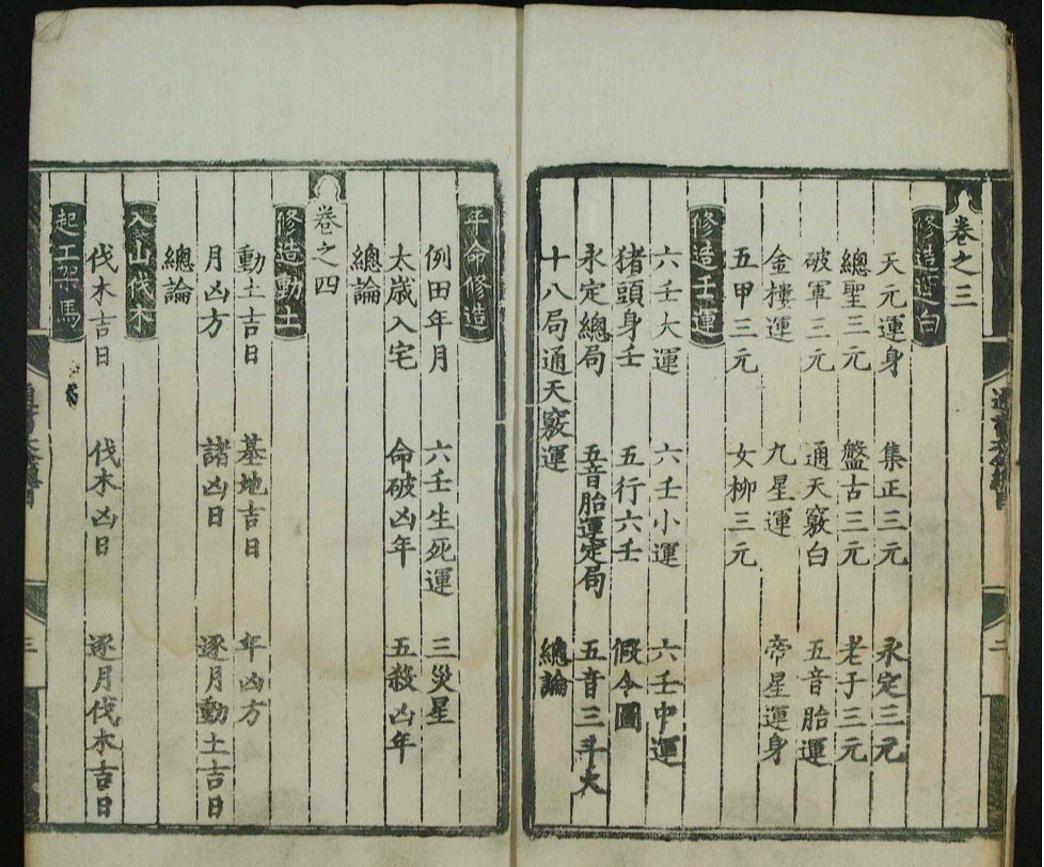 卷之三
修造逆白
天元運身 集正三元 永定三元
總聖三元 盤古三元 老子三元
破軍三元 通天竅白 五音胎運
金樓運 九星運 帝星運身
五甲三元 女柳三元
修造壬運
六壬大運 六壬小運 六壬中運
猪頭身壬 五行六壬 假令圖
永定總局 五音胎運定局 五音三斗火
十八局通天竅運 總論
二
年命修造
例田年月 六壬生死運 三災星
太歲入宅 命破凶年 五殺凶年
總論
卷之四
修造動土
動土吉日 基地吉日 年凶方
月凶方 諸凶日 逐月動土吉日
總論
入山伐木
伐木吉日 伐木凶日 逐月伐木吉日
起工架馬
三